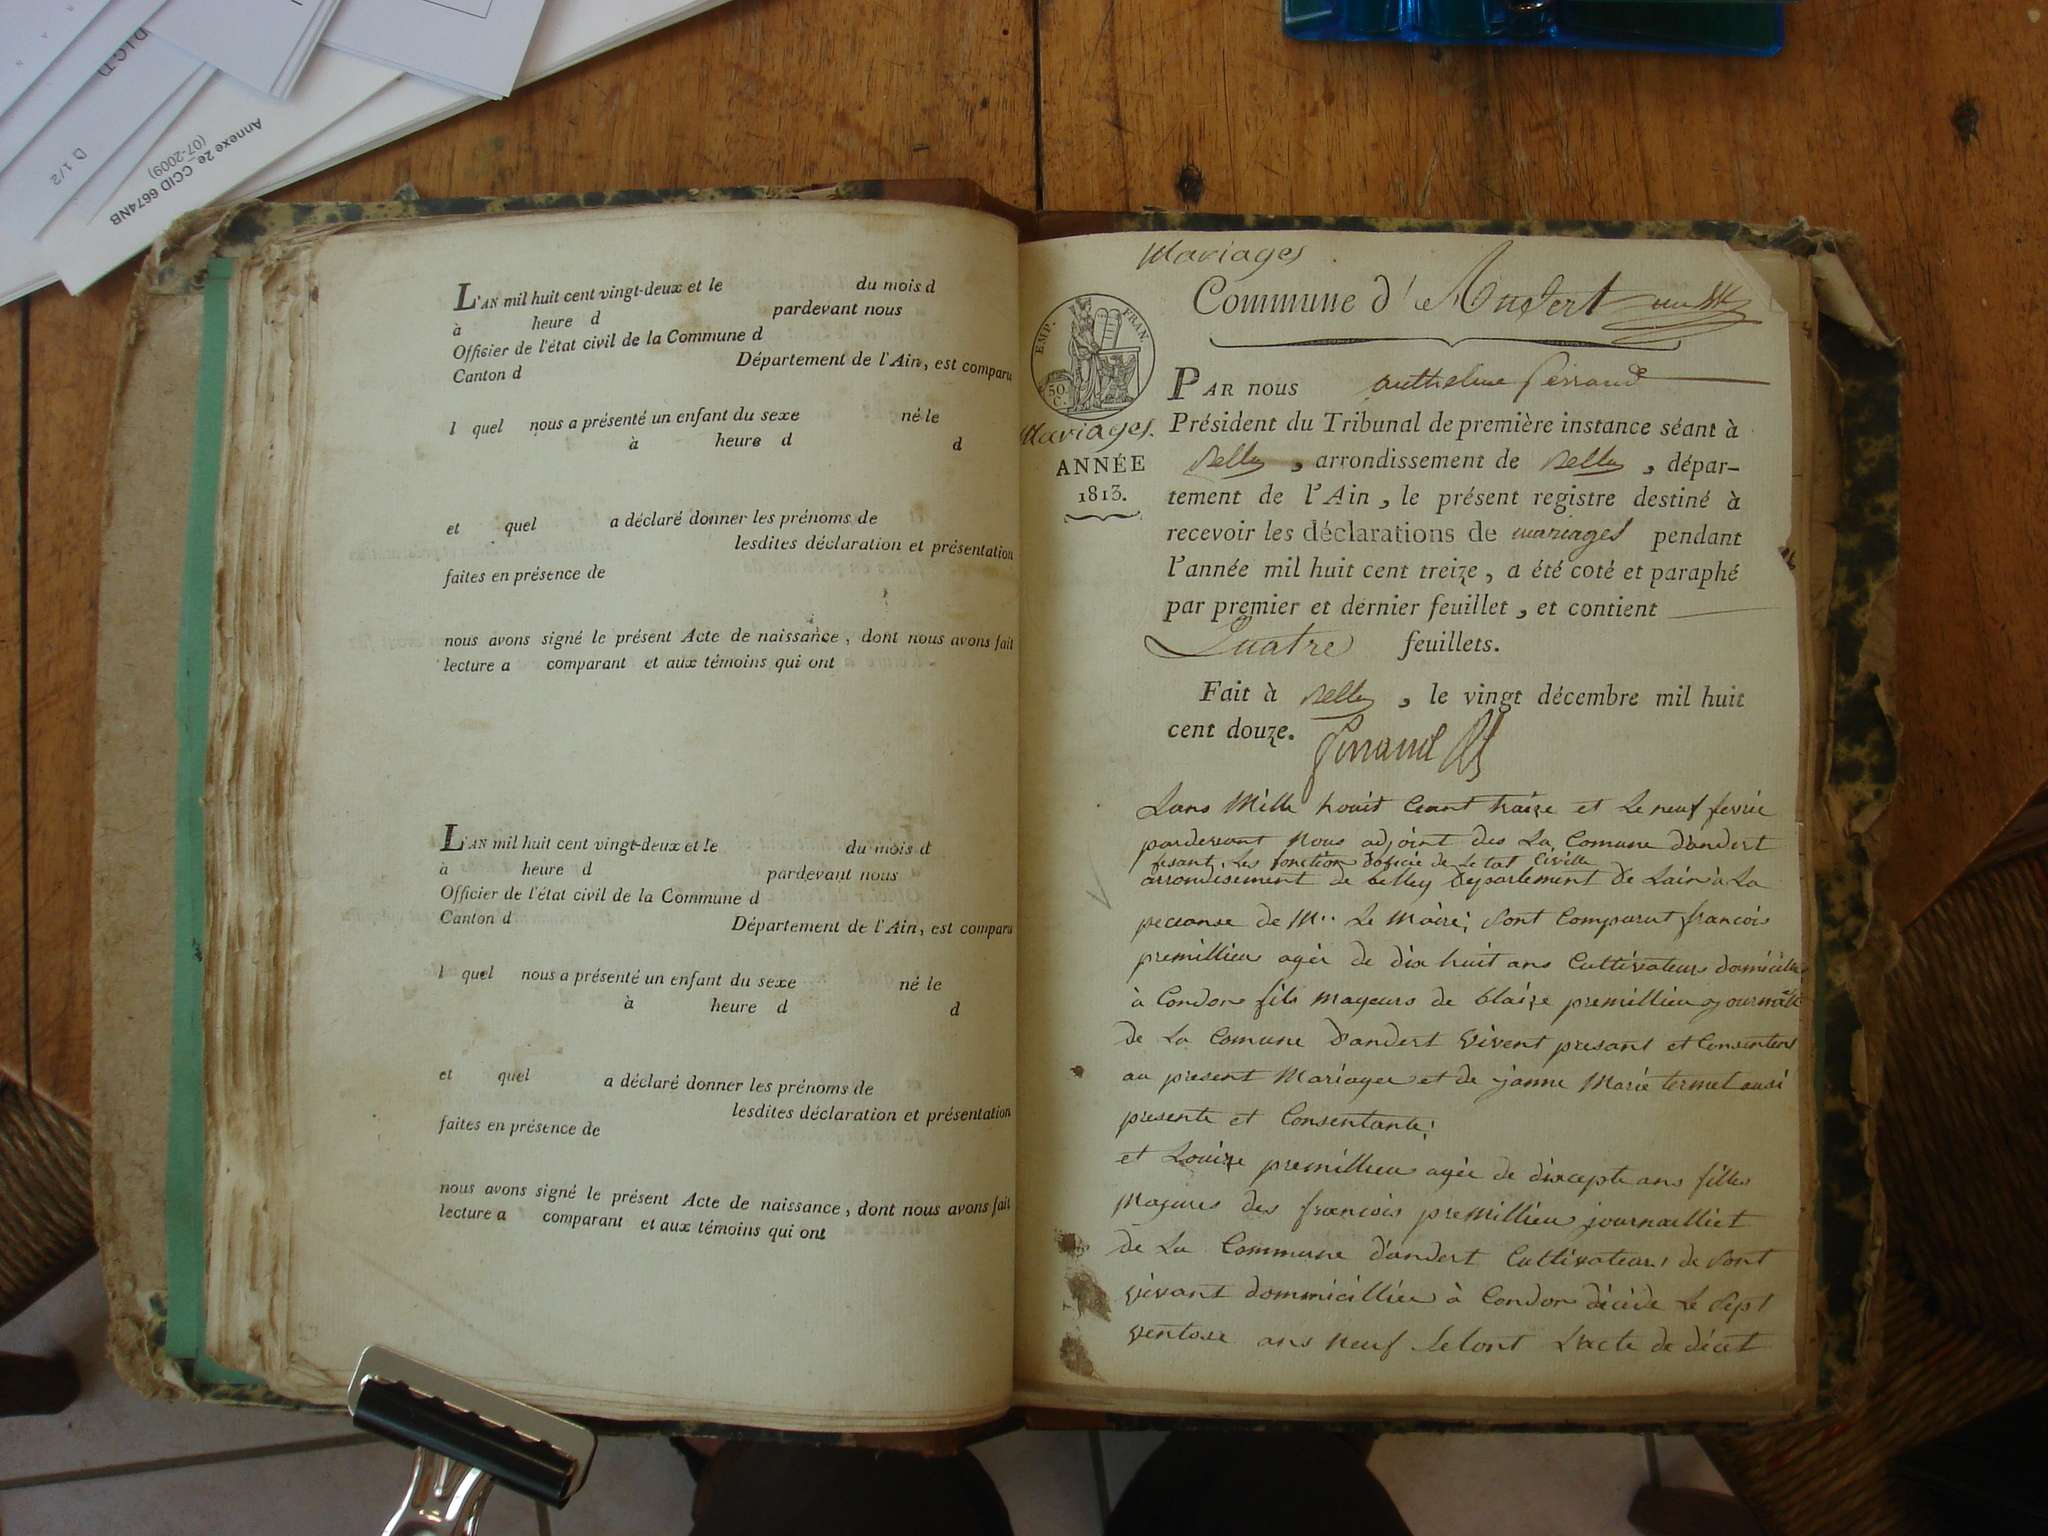 DICTI
D 1/2
Annexe 2e_CCID 6674NB
(07-2009)
L'AN mil huit cent vingt-deux et le du mois d
à heure d pardevant nous
Officier de l'état civil de la Commune d
Canton d Département de l'Ain, est comparu
l quel nous a présenté un enfant du sexe né le
à heure d d
et quel a déclaré donner les prénoms de
lesdites déclaration et présentation
faites en présence de
nous avons signé le présent Acte de naissance, dont nous avons fait
lecture a comparant et aux témoins qui ont
L'AN mil huit cent vingt-deux et le du mois d
à heure d pardevant nous
Officier de l'état civil de la Commune d
Canton d Département de l'Ain, est comparu
l quel nous a présenté un enfant du sexe né le
à heure d d
et quel a déclaré donner les prénoms de
lesdites déclaration et présentation
faites en présence de
nous avons signé le présent Acte de naissance, dont nous avons fait
lecture a comparant et aux témoins qui ont
Mariages
Commune d'Andert
EMP. FRAN.
50 C.
Mariages.
ANNÉE
1813.
PAR nous anthelme Perraud
Président du Tribunal de première instance séant à
Belley, arrondissement de Belley, dépar-
tement de l'Ain, le présent registre destiné à
recevoir les déclarations de mariages pendant
l'année mil huit cent treize, a été coté et paraphé
par premier et dernier feuillet, et contient
Quatre feuillets.
Fait à Belley, le vingt décembre mil huit
cent douze. Perraud
Lans Mille houit Ceant traize et Le neuf fevrie
pardevant Nous adjoint des La Comune d'andert
fesant Les fonction d'oficie de Letat Civille
arrondisement de belley Departement de Lain à La
de Mr. Le Maire; Sont Comparut francois
premillieu agée de dix huit ans Cultivateurs domicillie
à Condon fils mageurs de blaize premillieu
de La Comune d'andert vivent presant et Consentent
au present Mariagee et de janne Marie termet ausi
presente et Consentante;
et Louize premillieu agée de disceptr ans filles
Majures des francois premillieu journailliet
de La Commune d'andert Cultivateur, de Sont
vivant dommicilliee à Condon décéde Le Sept
ventose ans neuf Selont L'acte de décet